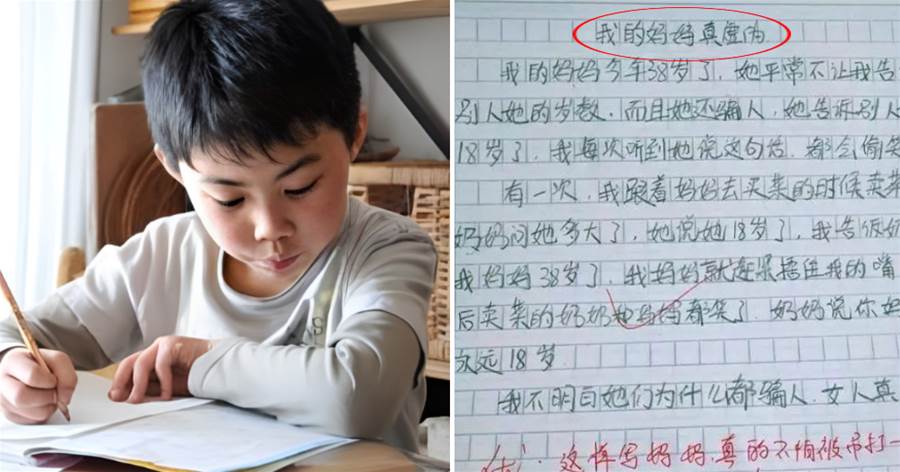 我的妈妈真虚伪
我的妈妈今年38岁了，她平常不让我告
别人她的岁数，而且她还骗人，她告诉别人
18岁了，我每次听到她说这句话，都会偷笑
有一次，我跟着妈妈去买菜的时候卖菜
奶奶问她多大了，她说她18岁了，我告饭奶
我妈妈38岁了，我妈妈就赶紧捂住我的嘴
后卖菜的奶奶和妈妈都笑了，奶奶说你妈
永远18岁
我不明白她们为什么都骗人，女人真
这样写妈妈，真的不怕被吊打一